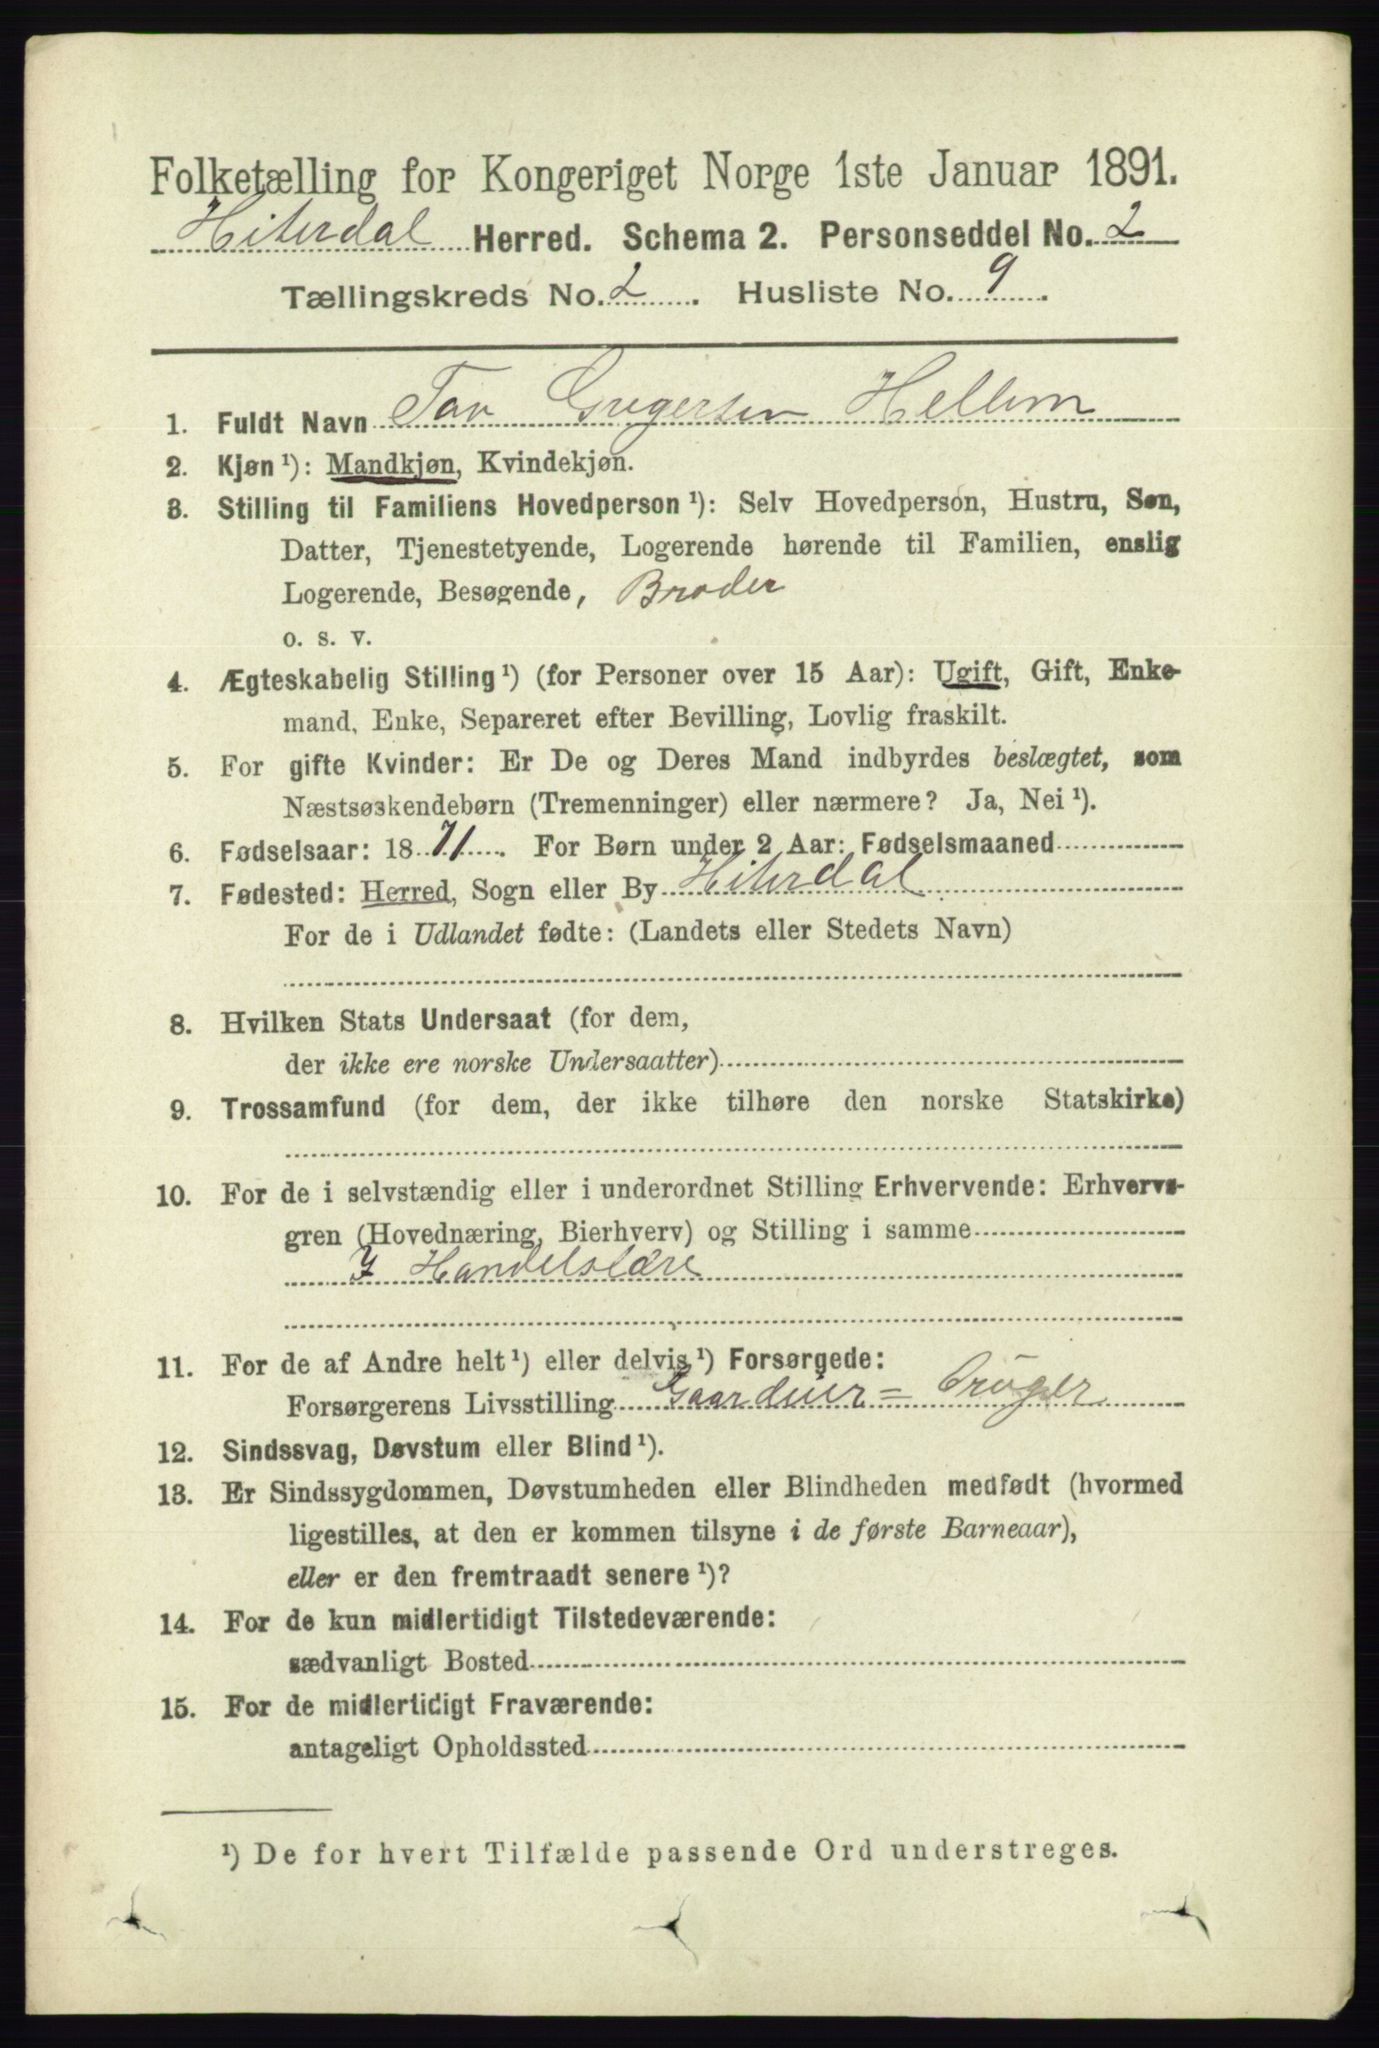 Folketælling for Kongeriget Norge 1ste Januar 1891.
Hiterdal Herred. Schema 2. Personseddel No. 2
Tællingskreds No. 2. Husliste No. 9.
1. Fuldt Navn Tov Gregersen Hellem
2. Kjøn ¹): Mandkjøn, Kvindekjøn.
3. Stilling til Familiens Hovedperson ¹): Selv Hovedperson, Hustru, Søn,
Datter, Tjenestetyende, Logerende hørende til Familien, enslig
Logerende, Besøgende, Broder
o. s. v.
4. Ægteskabelig Stilling ¹) (for Personer over 15 Aar): Ugift, Gift, Enke-
mand, Enke, Separeret efter Bevilling, Lovlig fraskilt.
5. For gifte Kvinder: Er De og Deres Mand indbyrdes beslægtet, som
Næstsøskendebørn (Tremenninger) eller nærmere? Ja, Nei ¹).
6. Fødselsaar: 1871. For Børn under 2 Aar: Fødselsmaaned
7. Fødested: Herred, Sogn eller By Hiterdal
For de i Udlandet fødte: (Landets eller Stedets Navn)
8. Hvilken Stats Undersaat (for dem,
der ikke ere norske Undersaatter)
9. Trossamfund (for dem, der ikke tilhøre den norske Statskirke)
10. For de i selvstændig eller i underordnet Stilling Erhvervende: Erhvervs-
gren (Hovednæring, Bierhverv) og Stilling i samme
I Handelslære
11. For de af Andre helt ¹) eller delvis ¹) Forsørgede:
Forsørgerens Livsstilling Gaardeier = Bruger
12. Sindssvag, Døvstum eller Blind ¹).
13. Er Sindssygdommen, Døvstumheden eller Blindheden medfødt (hvormed
ligestilles, at den er kommen tilsyne i de første Barneaar),
eller er den fremtraadt senere ¹)?
14. For de kun midlertidigt Tilstedeværende:
sædvanligt Bosted
15. For de midlertidigt Fraværende:
antageligt Opholdssted
¹) De for hvert Tilfælde passende Ord understreges.